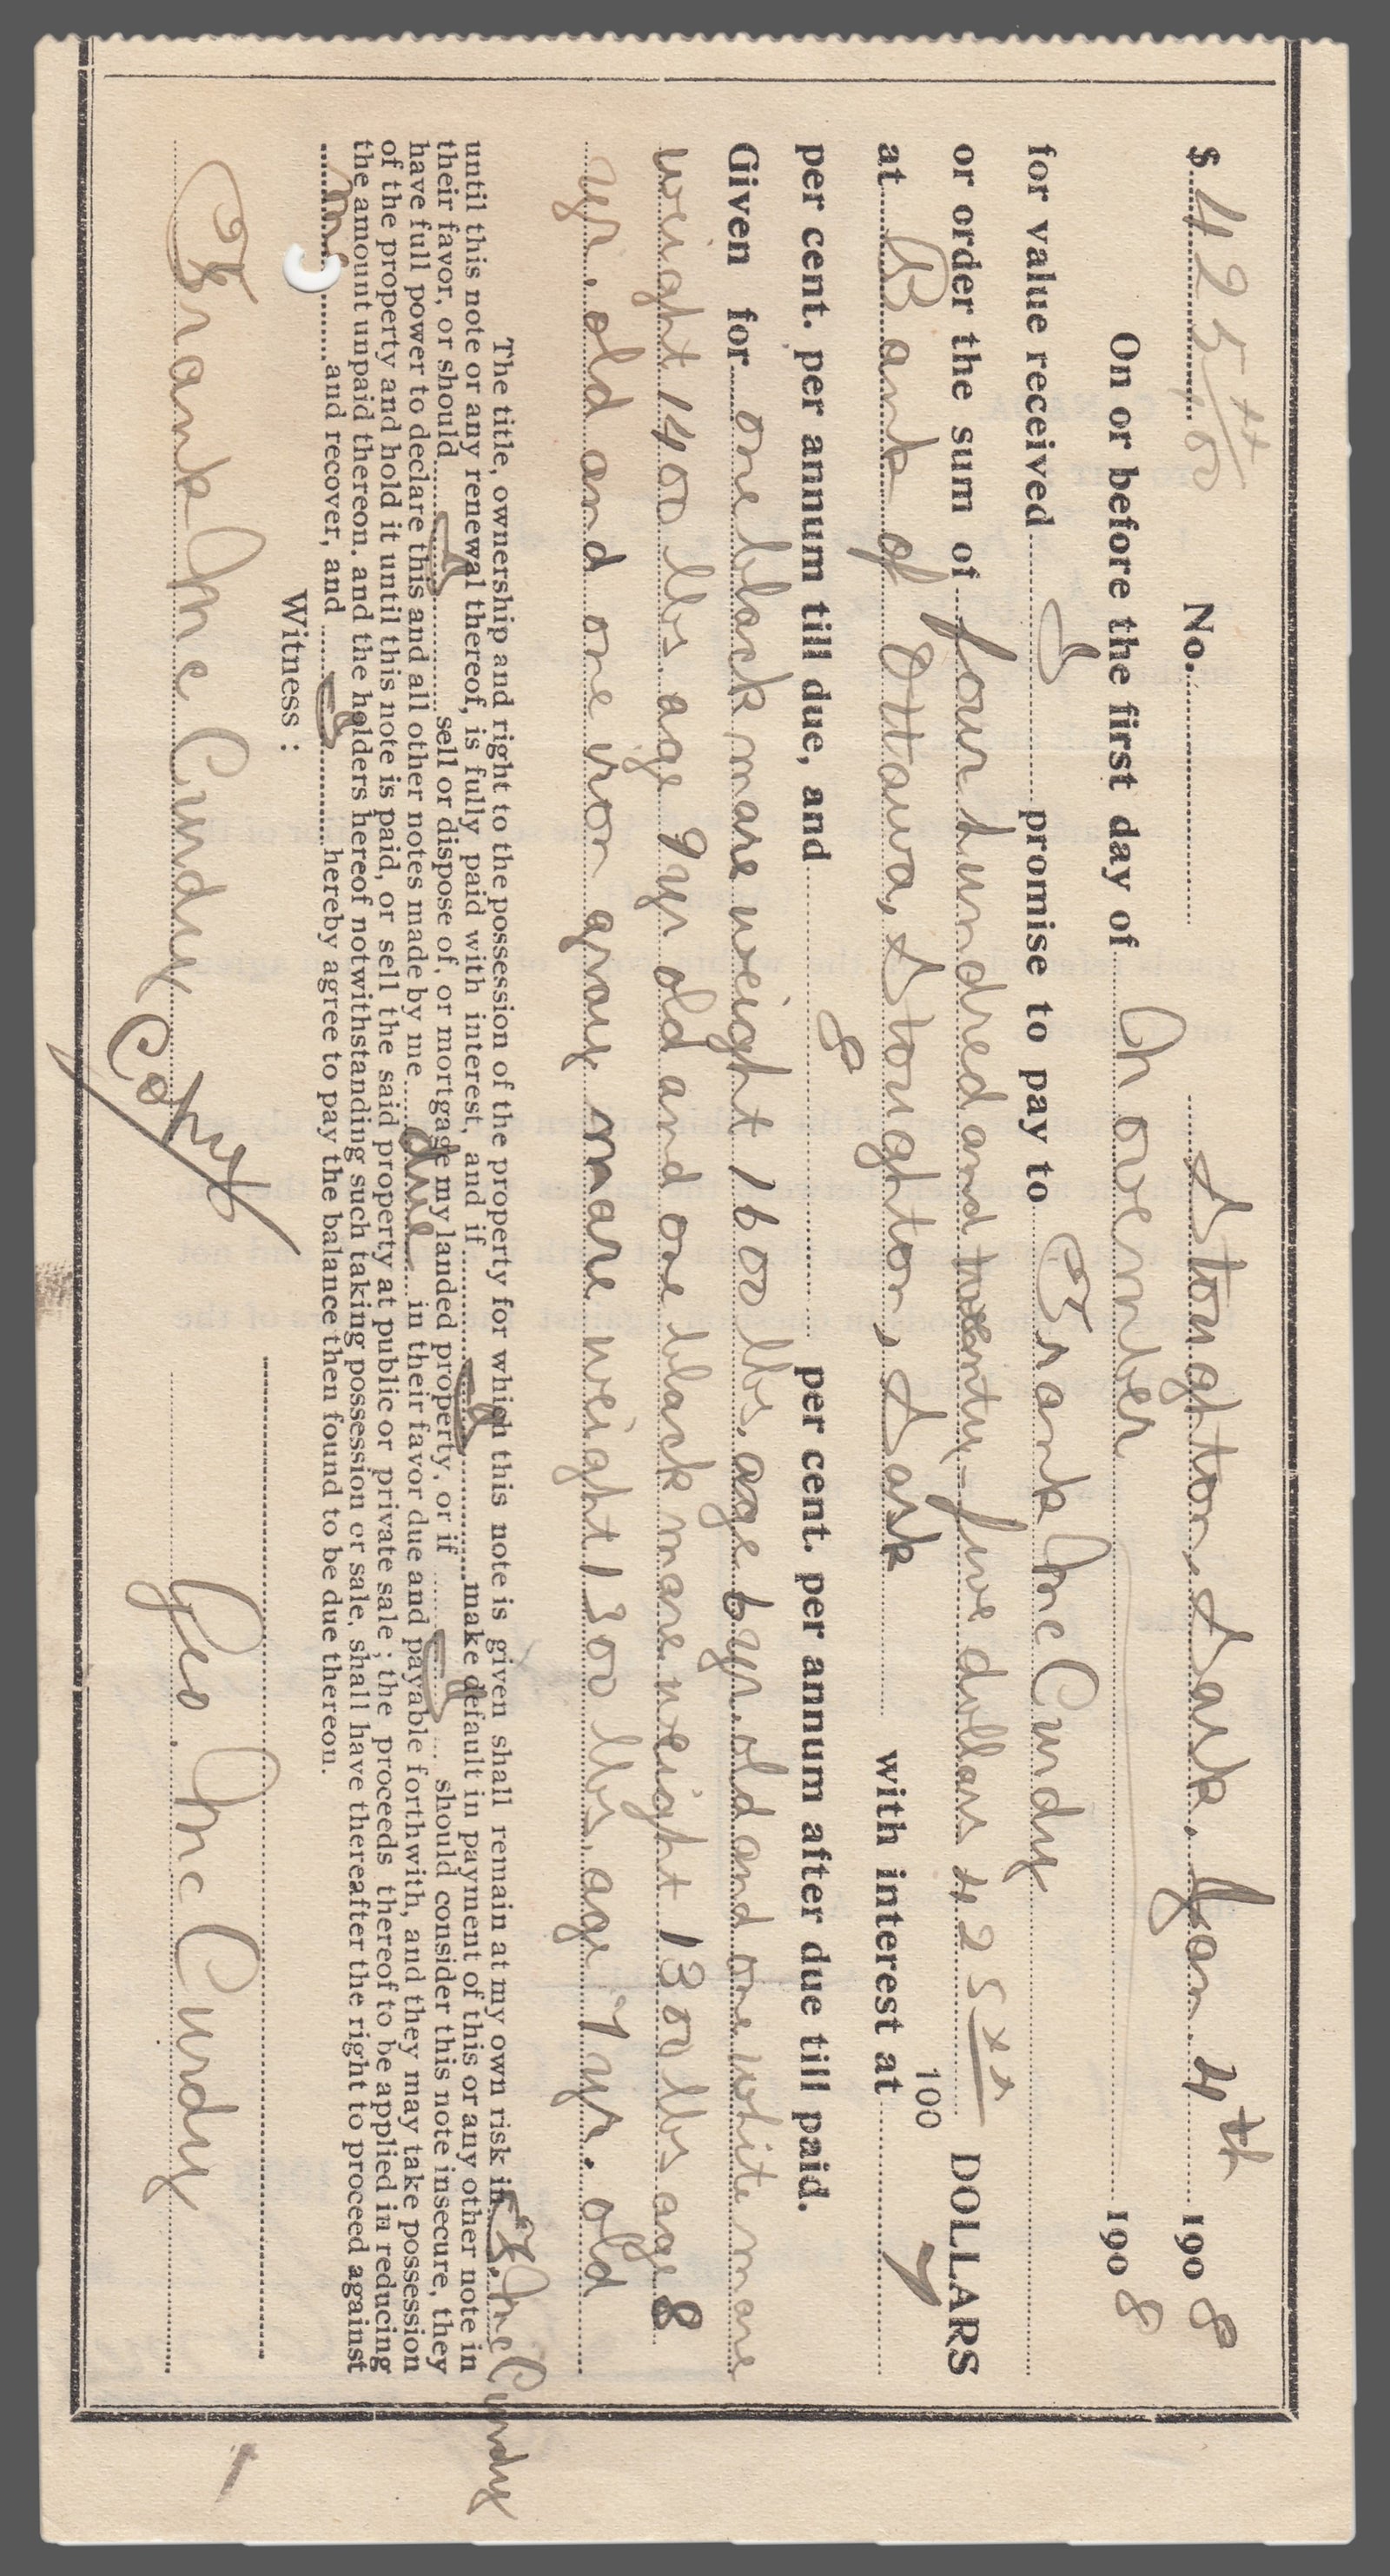 $ 425 xx/00 No. Stoughton, Sask. Jan. 4th 1908
On or before the first day of November 1908
for value received I promise to pay to Frank McCurdy
or order the sum of four hundred and twenty-five dollars 425 xx/100 DOLLARS
at Bank of Ottawa, Stoughton, Sask with interest at 7
per cent. per annum till due, and 8 per cent. per annum after due till paid.
Given for one black mare weight 1600 lbs. age 6 yr. old and one white mare
weight 1400 lbs. age 9 yr old and one black mare weight 1300 lbs age 8
yr. old and one iron gray mare weight 1300 lbs. age 7 yr. old
The title, ownership and right to the possession of the property for which this note is given shall remain at my own risk in F. McCurdy
until this note or any renewal thereof, is fully paid with interest, and if I make default in payment of this or any other note in
their favor, or should I sell or dispose of, or mortgage my landed property, or if I should consider this note insecure, they
have full power to declare this and all other notes made by me due in their favor due and payable forthwith, and they may take possession
of the property and hold it until this note is paid, or sell the said property at public or private sale; the proceeds thereof to be applied in reducing
the amount unpaid thereon, and the holders hereof notwithstanding such taking possession or sale, shall have thereafter the right to proceed against
me and recover, and I hereby agree to pay the balance then found to be due thereon.
Witness:
Frank McCurdy Copy Geo. McCurdy